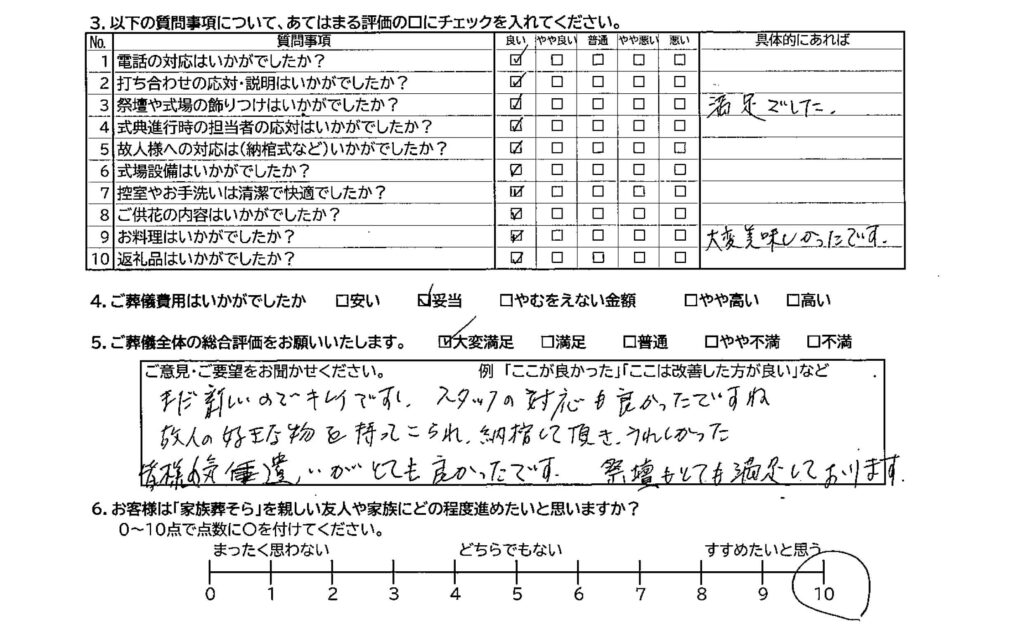 3. 以下の質問事項について、あてはまる評価の口にチェックを入れてください。
No. 質問事項 良い やや良い 普通 やや悪い 悪い 具体的にあれば
1 電話の対応はいかがでしたか? ☑ □ □ □ □
2 打ち合わせの応対・説明はいかがでしたか? ☑ □ □ □ □
3 祭壇や式場の飾りつけはいかがでしたか? ☑ □ □ □ □ 満足でした.
4 式典進行時の担当者の応対はいかがでしたか? ☑ □ □ □ □
5 故人様への対応は(納棺式など)いかがでしたか? ☑ □ □ □ □
6 式場設備はいかがでしたか? ☑ □ □ □ □
7 控室やお手洗いは清潔で快適でしたか? ☑ □ □ □ □
8 ご供花の内容はいかがでしたか? ☑ □ □ □ □
9 お料理はいかがでしたか? ☑ □ □ □ □ 大変美味しかったです.
10 返礼品はいかがでしたか? ☑ □ □ □ □
4. ご葬儀費用はいかがでしたか □安い ☑妥当 □やむをえない金額 □やや高い □高い
5. ご葬儀全体の総合評価をお願いいたします。 ☑大変満足 □満足 □普通 □やや不満 □不満
ご意見・ご要望をお聞かせください。 例 「ここが良かった」「ここは改善した方が良い」など
まだ新しいのでキレイですし、スタッフの対応も良かったですね
故人の好きな物を持ってこられ、納棺して頂き、うれしかった
皆様の気遣いがとても良かったです. 祭壇もとても満足しております.
6. お客様は「家族葬そら」を親しい友人や家族にどの程度進めたいと思いますか?
0〜10点で点数に〇を付けてください。
まったく思わない どちらでもない すすめたいと思う
0 1 2 3 4 5 6 7 8 9 10